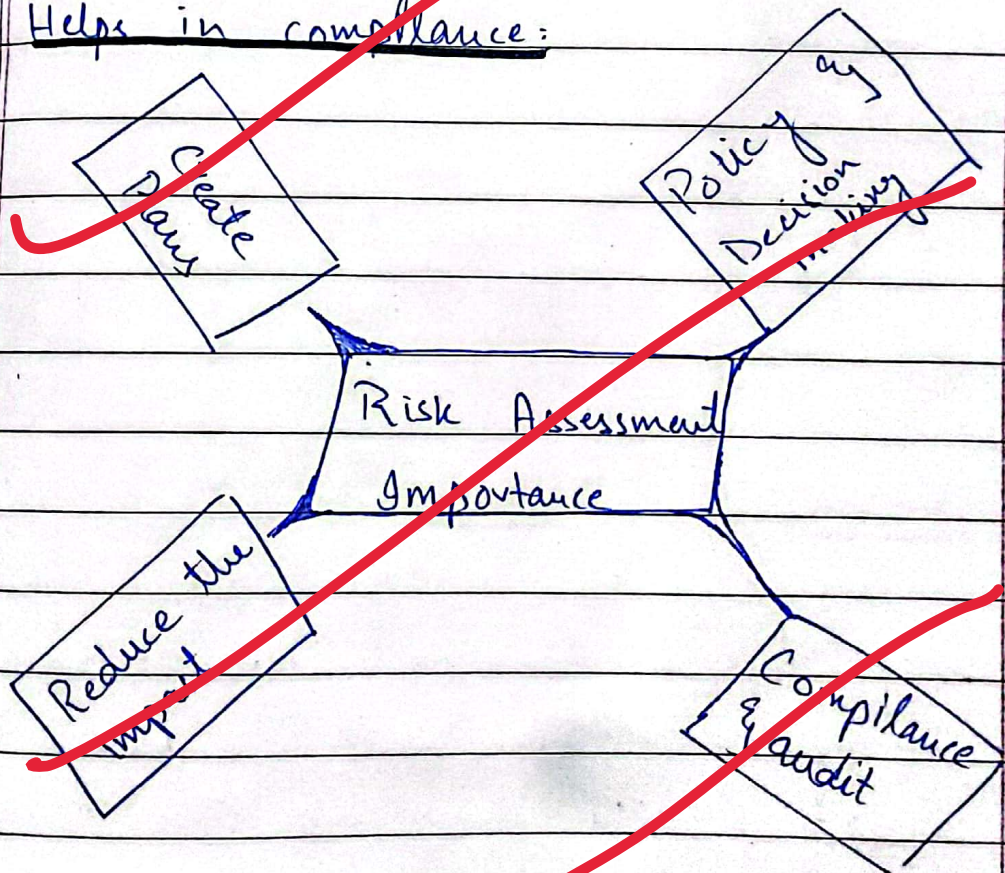 Helps in compliance:
Create
Plans
Policy
Decision
making
Risk Assessment
Importance
Reduce the
impact
Compilance
& audit